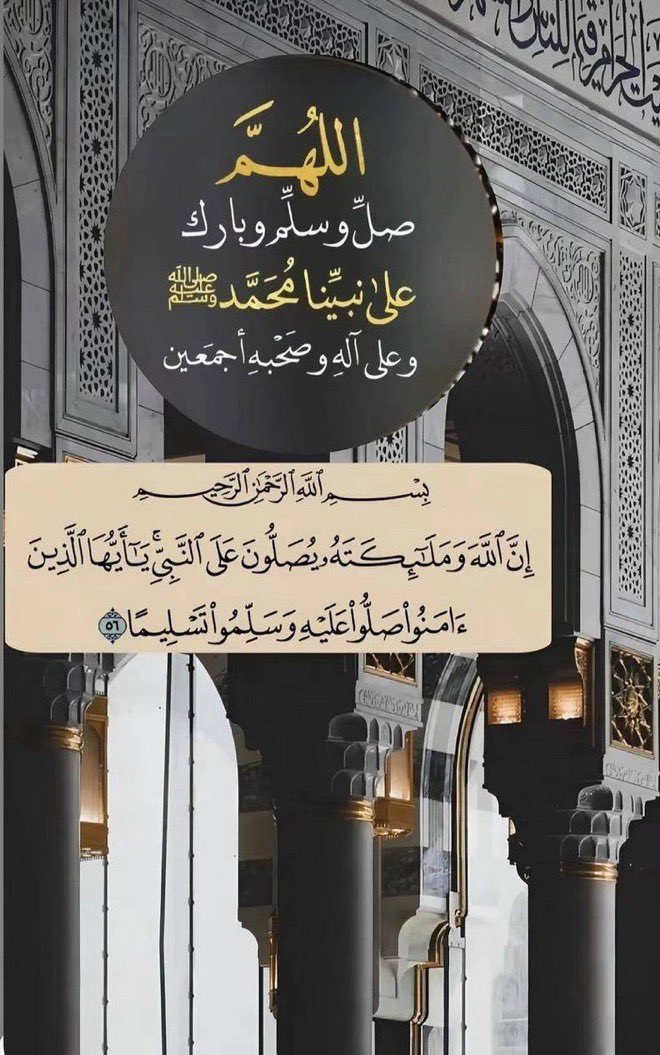 اللهُمَّ
صلِّ وسلِّم وبارك
على نبيِّنا مُحَمَّد ﷺ
وعلى آلهِ وصَحْبهِ أجمَعين
بِسْمِ ٱللَّهِ ٱلرَّحْمَٰنِ ٱلرَّحِيمِ
إِنَّ ٱللَّهَ وَمَلَٰٓئِكَتَهُۥ يُصَلُّونَ عَلَى ٱلنَّبِيِّۚ يَٰٓأَيُّهَا ٱلَّذِينَ
ءَامَنُوا۟ صَلُّوا۟ عَلَيْهِ وَسَلِّمُوا۟ تَسْلِيمًا ٥٦